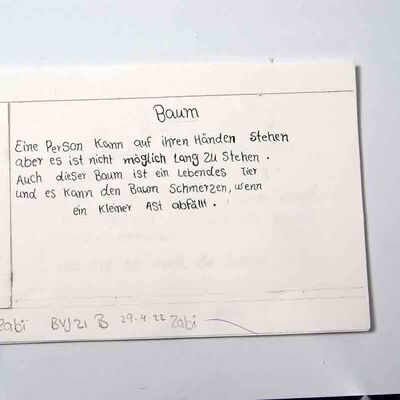 Baum
Eine Person kann auf ihren Händen stehen
aber es ist nicht möglich lang zu stehen.
Auch dieser Baum ist ein Lebendes Tier
und es kann den Baum schmerzen, wenn
ein kleiner Ast abfällt.
Zabi BVJ21 B 29.4.22 Zabi